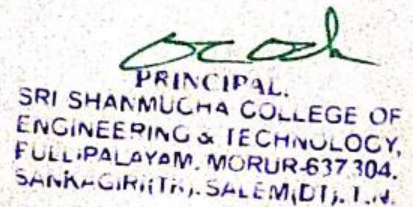 PRINCIPAL,
SRI SHANMUGHA COLLEGE OF
ENGINEERING & TECHNOLOGY,
PULLIPALAYAM, MORUR-637 304.
SANKAGIRI(TK), SALEM(DT), T.N.